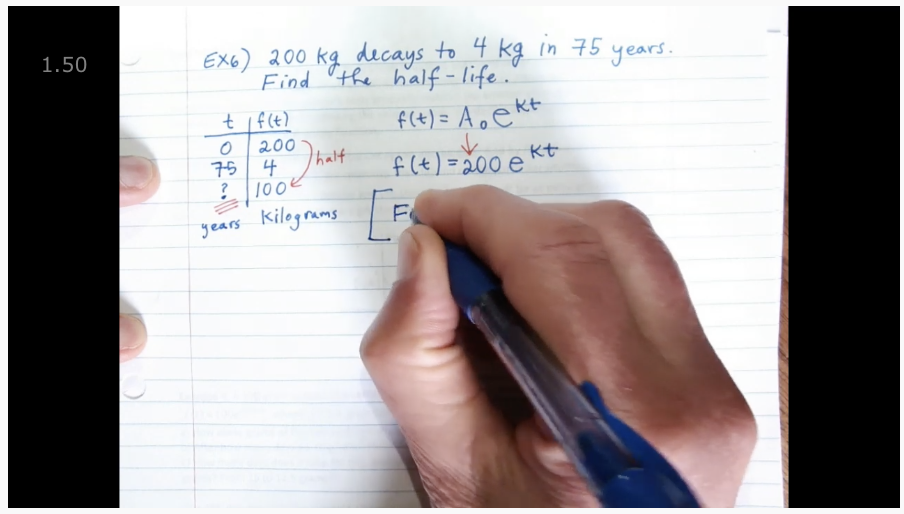 1.50
EX6) 200 kg decays to 4 kg in 75 years.
Find the half-life.
t f(t)
0 200
75 4
? 100
half
years Kilograms
f(t) = A₀e^kt
↓
f(t) = 200 e^kt
[